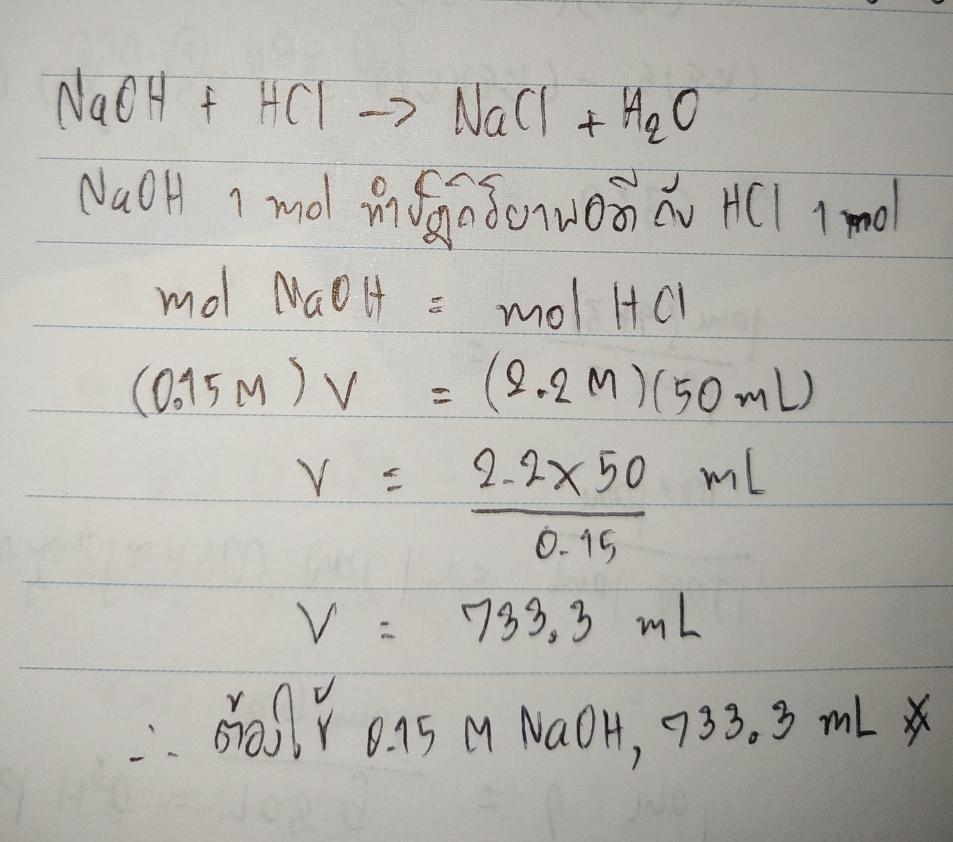 NaOH + HCl -> NaCl + H₂O
NaOH 1 mol ทำปฏิกิริยาพอดีกับ HCl 1 mol
mol NaOH = mol HCl
(0.15 M) V = (2.2 M)(50 mL)
V = 2.2 x 50 mL
0.15
V = 733.3 mL
∴ ต้องใช้ 0.15 M NaOH, 733.3 mL ※